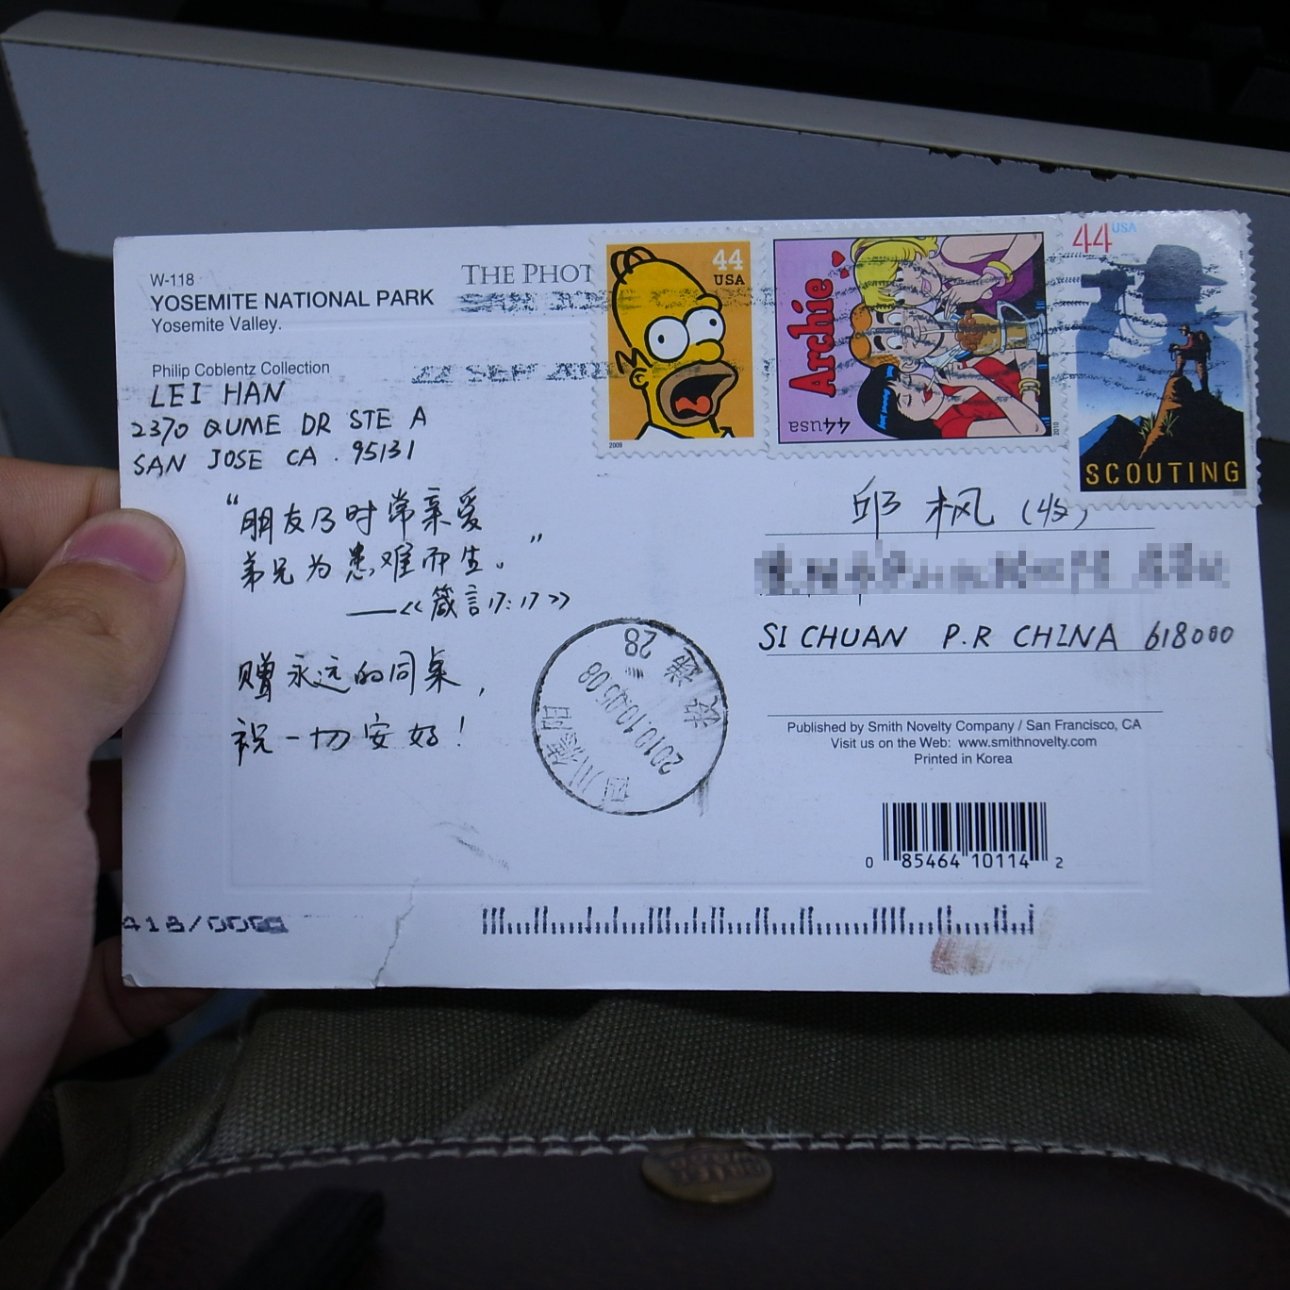 W-118
YOSEMITE NATIONAL PARK
Yosemite Valley.
Philip Coblentz Collection
THE PHOT
44
USA
2009
Archie
44USA
2010
44USA
SCOUTING
LEI HAN
2370 QUME DR STE A
SAN JOSE CA. 95131
“朋友乃时常亲爱
弟兄为患难而生。”
——《箴言17:17》
赠永远的同桌,
祝一切安好!
邱枫(收)
SI CHUAN P.R CHINA 618000
2010.10.05.08
28
Published by Smith Novelty Company / San Francisco, CA
Visit us on the Web: www.smithnovelty.com
Printed in Korea
0 85464 10114 2